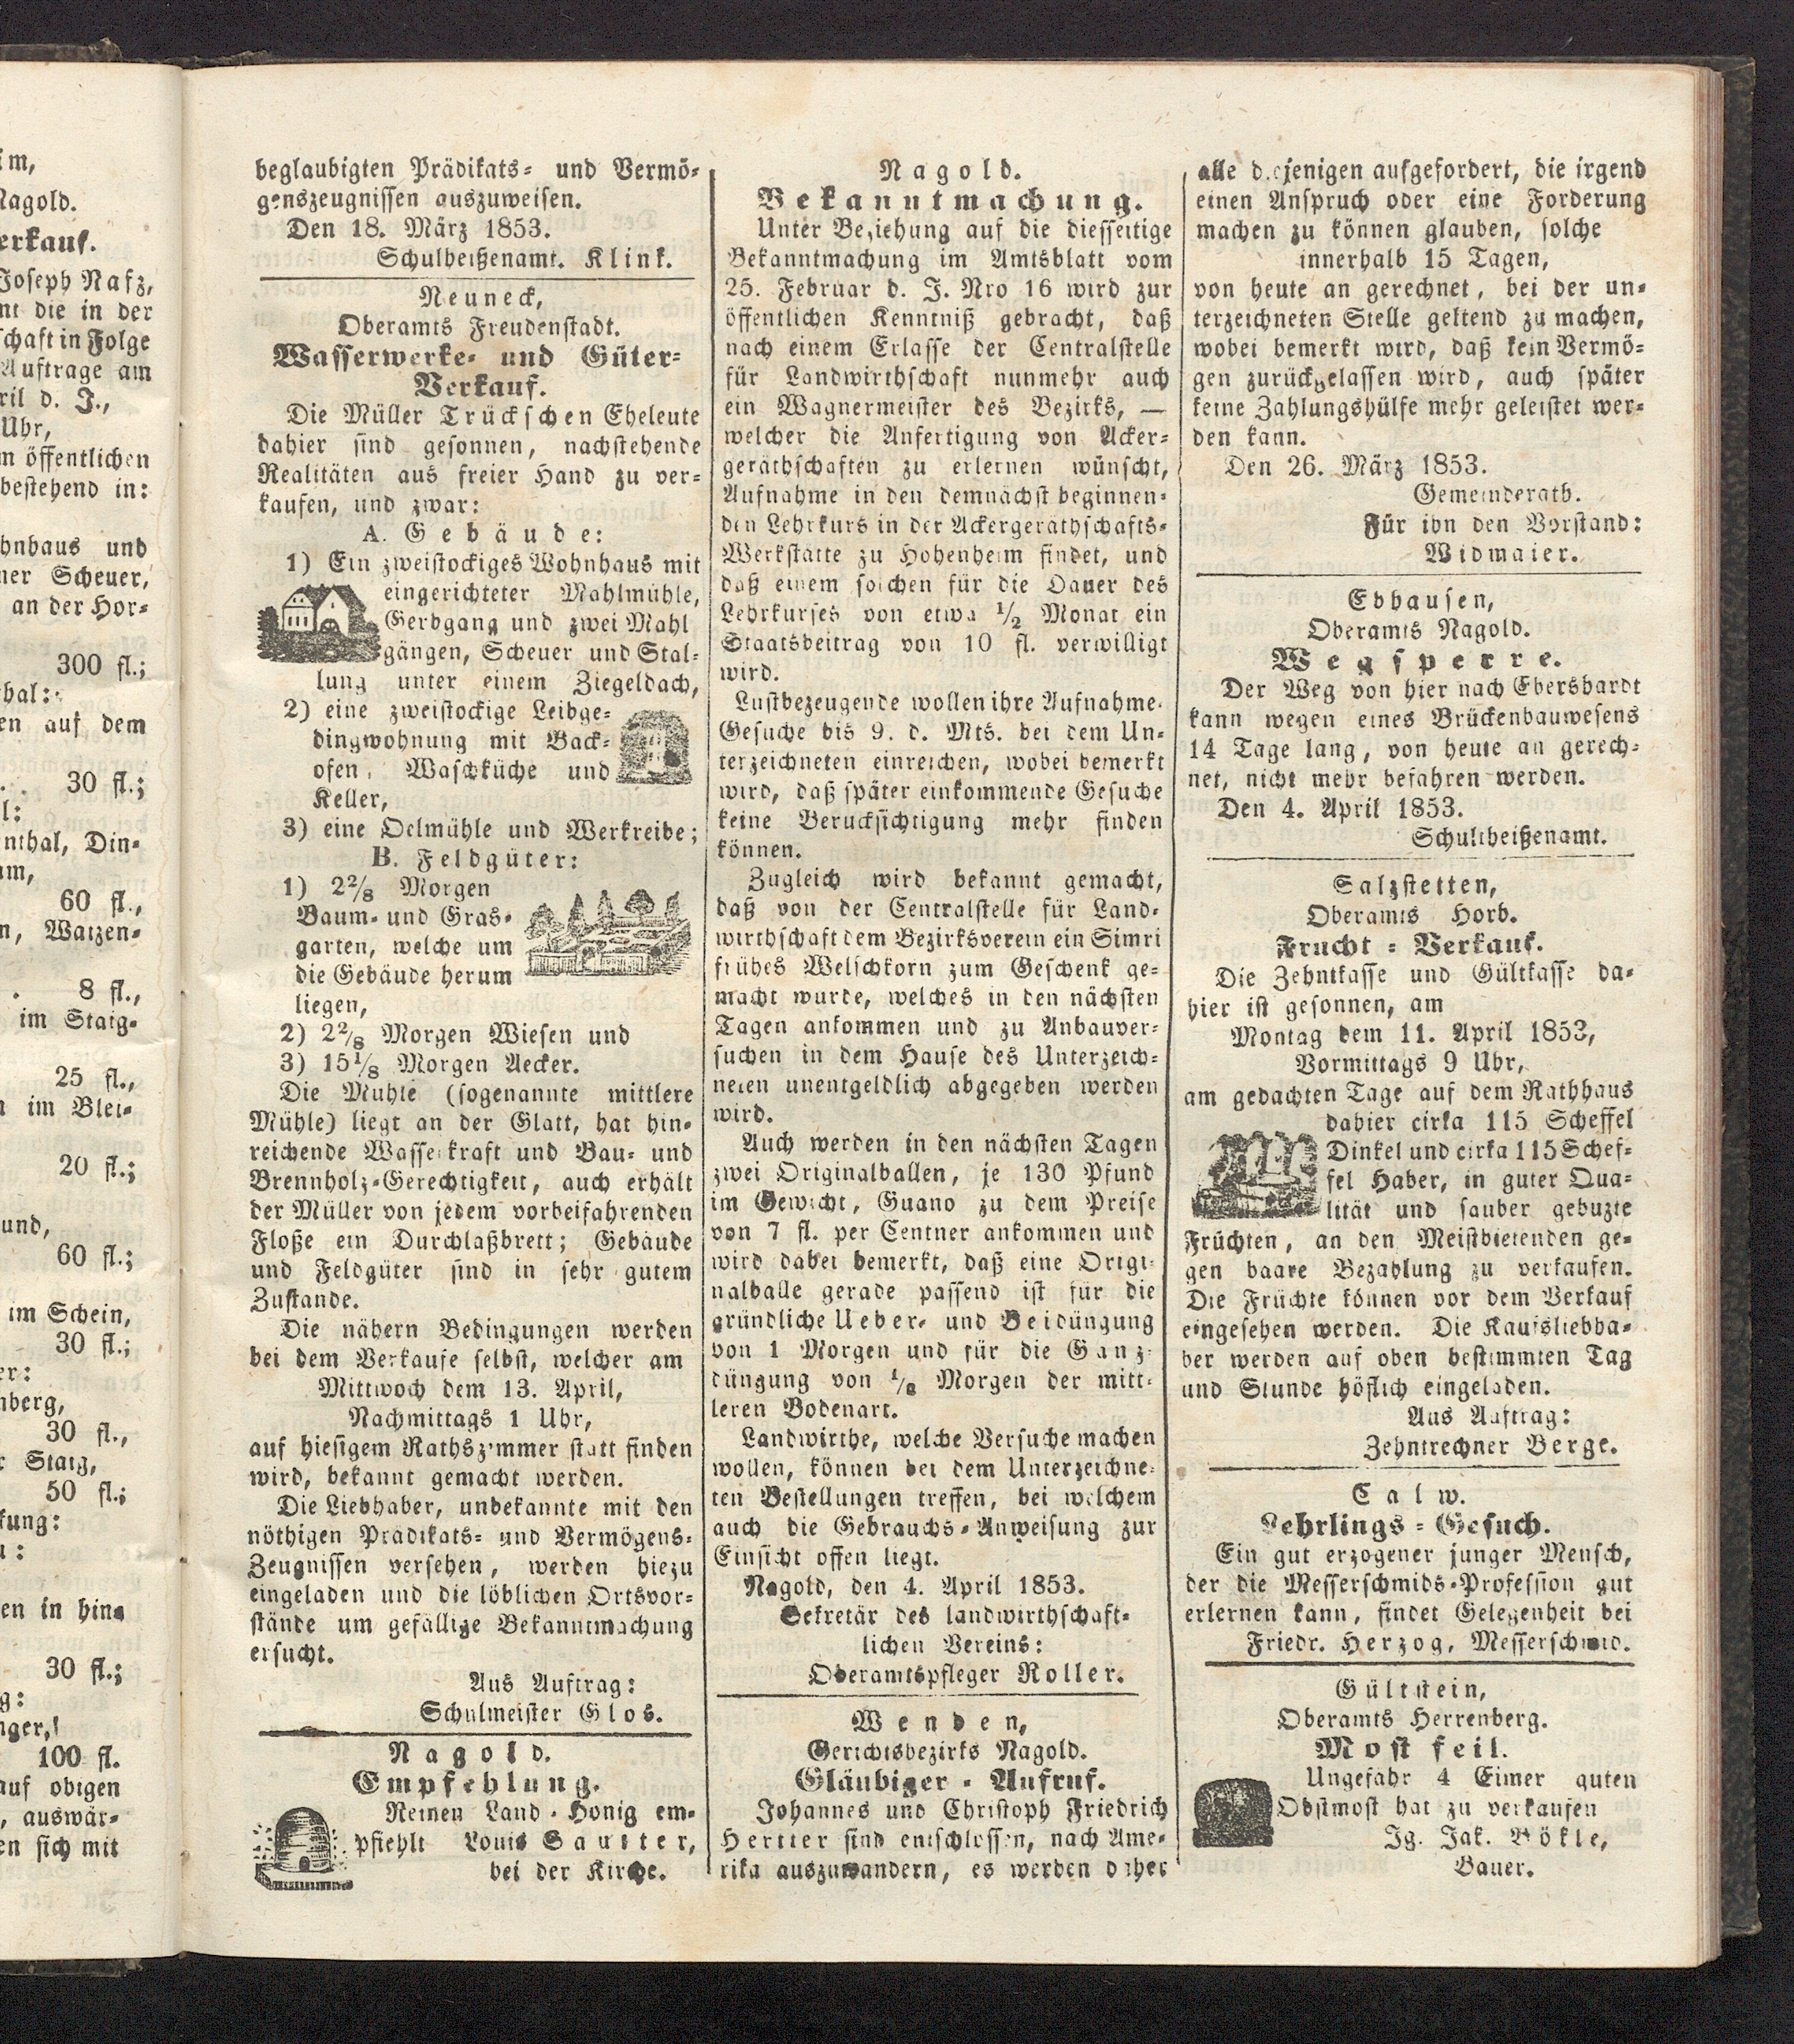 im,
Nagold.
erkauf.
Joseph Nafz,
mt die in der
schaft in Folge
Auftrage am
ril d. J.,
Uhr,
m öffentlichen
bestehend in:
hnhaus und
ner Scheuer,
an der Hor-
300 fl.;
hal:
en auf dem
30 fl.;
l:
nthal, Din-
um,
60 fl.,
n, Waizen-
8 fl.,
im Staig-
25 fl.,
n im Blei-
20 fl.;
und,
60 fl.;
im Schein,
30 fl.;
er:
nberg,
30 fl.,
r Staig,
50 fl.;
kung:
u:
en in hin-
30 fl.;
g:
nger,
100 fl.
auf obigen
, auswär-
en sich mit
beglaubigten Prädikats- und Vermö-
genszeugnissen auszuweisen.
Den 18. März 1853.
Schulheißenamt. Klink.
Neuneck,
Oberamts Freudenstadt.
Wasserwerke- und Güter-
Verkauf.
Die Müller Trückschen Eheleute
dahier sind gesonnen, nachstehende
Realitäten aus freier Hand zu ver-
kaufen, und zwar:
A. Gebäude:
1) Ein zweistockiges Wohnhaus mit
eingerichteter Mahlmühle,
Gerbgang und zwei Mahl
gängen, Scheuer und Stal-
lung unter einem Ziegeldach,
2) eine zweistockige Leibge-
dingwohnung mit Back-
ofen, Waschküche und
Keller,
3) eine Oelmühle und Werkreibe;
B. Feldgüter:
1) 2 2/8 Morgen
Baum- und Gras-
garten, welche um
die Gebäude herum
liegen,
2) 2 2/8 Morgen Wiesen und
3) 15 1/8 Morgen Aecker.
Die Mühle (sogenannte mittlere
Mühle) liegt an der Glatt, hat hin-
reichende Wasserkraft und Bau- und
Brennholz-Gerechtigkeit, auch erhält
der Müller von jedem vorbeifahrenden
Floße ein Durchlaßbrett; Gebäude
und Feldgüter sind in sehr gutem
Zustande.
Die nähern Bedingungen werden
bei dem Verkaufe selbst, welcher am
Mittwoch dem 13. April,
Nachmittags 1 Uhr,
auf hiesigem Rathszimmer statt finden
wird, bekannt gemacht werden.
Die Liebhaber, unbekannte mit den
nöthigen Prädikats- und Vermögens-
Zeugnissen versehen, werden hiezu
eingeladen und die löblichen Ortsvor-
stände um gefällige Bekanntmachung
ersucht.
Aus Auftrag:
Schulmeister Glos.
Nagold.
Empfehlung.
Reinen Land-Honig em-
pfiehlt Louis Sautter,
bei der Kirche.
Nagold.
Bekanntmachung.
Unter Beziehung auf die diesseitige
Bekanntmachung im Amtsblatt vom
25. Februar d. J. Nro 16 wird zur
öffentlichen Kenntniß gebracht, daß
nach einem Erlasse der Centralstelle
für Landwirthschaft nunmehr auch
ein Wagnermeister des Bezirks, —
welcher die Anfertigung von Acker-
geräthschaften zu erlernen wünscht,
Aufnahme in den demnächst beginnen-
den Lehrkurs in der Ackergeräthschafts-
Werkstätte zu Hohenheim findet, und
daß einem solchen für die Dauer des
Lehrkurses von etwa 1/2 Monat ein
Staatsbeitrag von 10 fl. verwilligt
wird.
Lustbezeugende wollen ihre Aufnahme-
Gesuche bis 9. d. Mts. bei dem Un-
terzeichneten einreichen, wobei bemerkt
wird, daß später einkommende Gesuche
keine Berucksichtigung mehr finden
können.
Zugleich wird bekannt gemacht,
daß von der Centralstelle für Land-
wirthschaft dem Bezirksverein ein Simri
frühes Welschkorn zum Geschenk ge-
macht wurde, welches in den nächsten
Tagen ankommen und zu Anbauver-
suchen in dem Hause des Unterzeich-
neten unentgeldlich abgegeben werden
wird.
Auch werden in den nächsten Tagen
zwei Originalballen, je 130 Pfund
im Gewicht, Guano zu dem Preise
von 7 fl. per Centner ankommen und
wird dabei bemerkt, daß eine Origi-
nalballe gerade passend ist für die
gründliche Ueber- und Beidüngung
von 1 Morgen und für die Ganz-
düngung von 1/8 Morgen der mitt-
leren Bodenart.
Landwirthe, welche Versuche machen
wollen, können bei dem Unterzeichne-
ten Bestellungen treffen, bei welchem
auch die Gebrauchs-Anweisung zur
Einsicht offen liegt.
Nagold, den 4. April 1853.
Sekretär des landwirthschaft-
lichen Vereins:
Oberamtspfleger Roller.
Wenden,
Gerichtsbezirks Nagold.
Gläubiger-Aufruf.
Johannes und Christoph Friedrich
Hertter sind entschlossen, nach Ame-
rika auszuwandern, es werden daher
alle diejenigen aufgefordert, die irgend
einen Anspruch oder eine Forderung
machen zu können glauben, solche
innerhalb 15 Tagen,
von heute an gerechnet, bei der un-
terzeichneten Stelle geltend zu machen,
wobei bemerkt wird, daß kein Vermö-
gen zurückgelassen wird, auch später
keine Zahlungshülfe mehr geleistet wer-
den kann.
Den 26. März 1853.
Gemeinderath.
Für ihn den Vorstand:
Widmaier.
Ebhausen,
Oberamts Nagold.
Wegsperre.
Der Weg von hier nach Ebershardt
kann wegen eines Brückenbauwesens
14 Tage lang, von heute an gerech-
net, nicht mehr befahren werden.
Den 4. April 1853.
Schultheißenamt.
Salzstetten,
Oberamts Horb.
Frucht-Verkauf.
Die Zehntkasse und Gültkasse da-
hier ist gesonnen, am
Montag dem 11. April 1853,
Vormittags 9 Uhr,
am gedachten Tage auf dem Rathhaus
dahier cirka 115 Scheffel
Dinkel und cirka 115 Schef-
fel Haber, in guter Qua-
lität und sauber gebuzte
Früchten, an den Meistbietenden ge-
gen baare Bezahlung zu verkaufen.
Die Früchte können vor dem Verkauf
eingesehen werden. Die Kaufsliebha-
ber werden auf oben bestimmten Tag
und Stunde höflich eingeladen.
Aus Auftrag:
Zehntrechner Berge.
Calw.
Lehrlings-Gesuch.
Ein gut erzogener junger Mensch,
der die Messerschmids-Profession gut
erlernen kann, findet Gelegenheit bei
Friedr. Herzog, Messerschmid.
Gültstein,
Oberamts Herrenberg.
Most feil.
Ungefähr 4 Eimer guten
Obstmost hat zu verkaufen
Jg. Jak. Bökle,
Bauer.